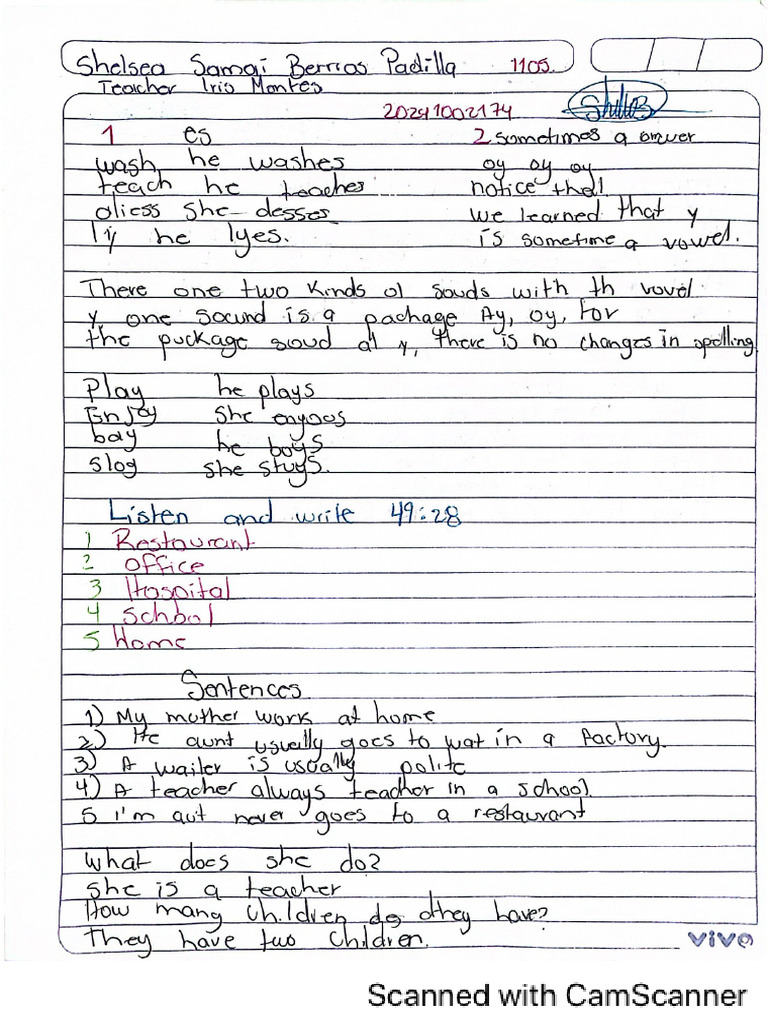 Shelsea Samai Berrios Padilla 1105.
Teacher Iris Montes
20241002174
1 es
2 sometimes a
wash he washes
oy oy oy
teach he teaches
notice that
she desses
we learned that y
he lyes.
is sometime a vowel.
There one two kinds of souds with th vovel
y one socund is a package Ay, oy, For
the puckage sioud at y, there is no changes in spelling
Play he plays
Enjoy she enyoos
bay he boys
slog she stuys.
Listen and write 49:28
1 Restaurant
2 office
3 Hospital
4 School
5 Home
Sentences
1) My mother work at home
2) He aunt usually goes to wat in a factory.
3) A wailer is usually polite
4) A teacher always teachor in a school
5 I'm aut never goes to a restaurant
What does she do?
She is a teacher
How many children do they have?
They have two children.
vivo
Scanned with CamScanner